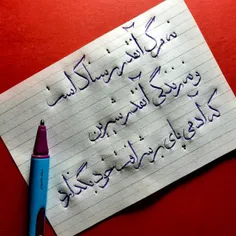 نه مرگ آنقدر ترسناک است
و نه زندگی آنقدر شیرین
که آدمی پای بر شرافت خود بگذارد